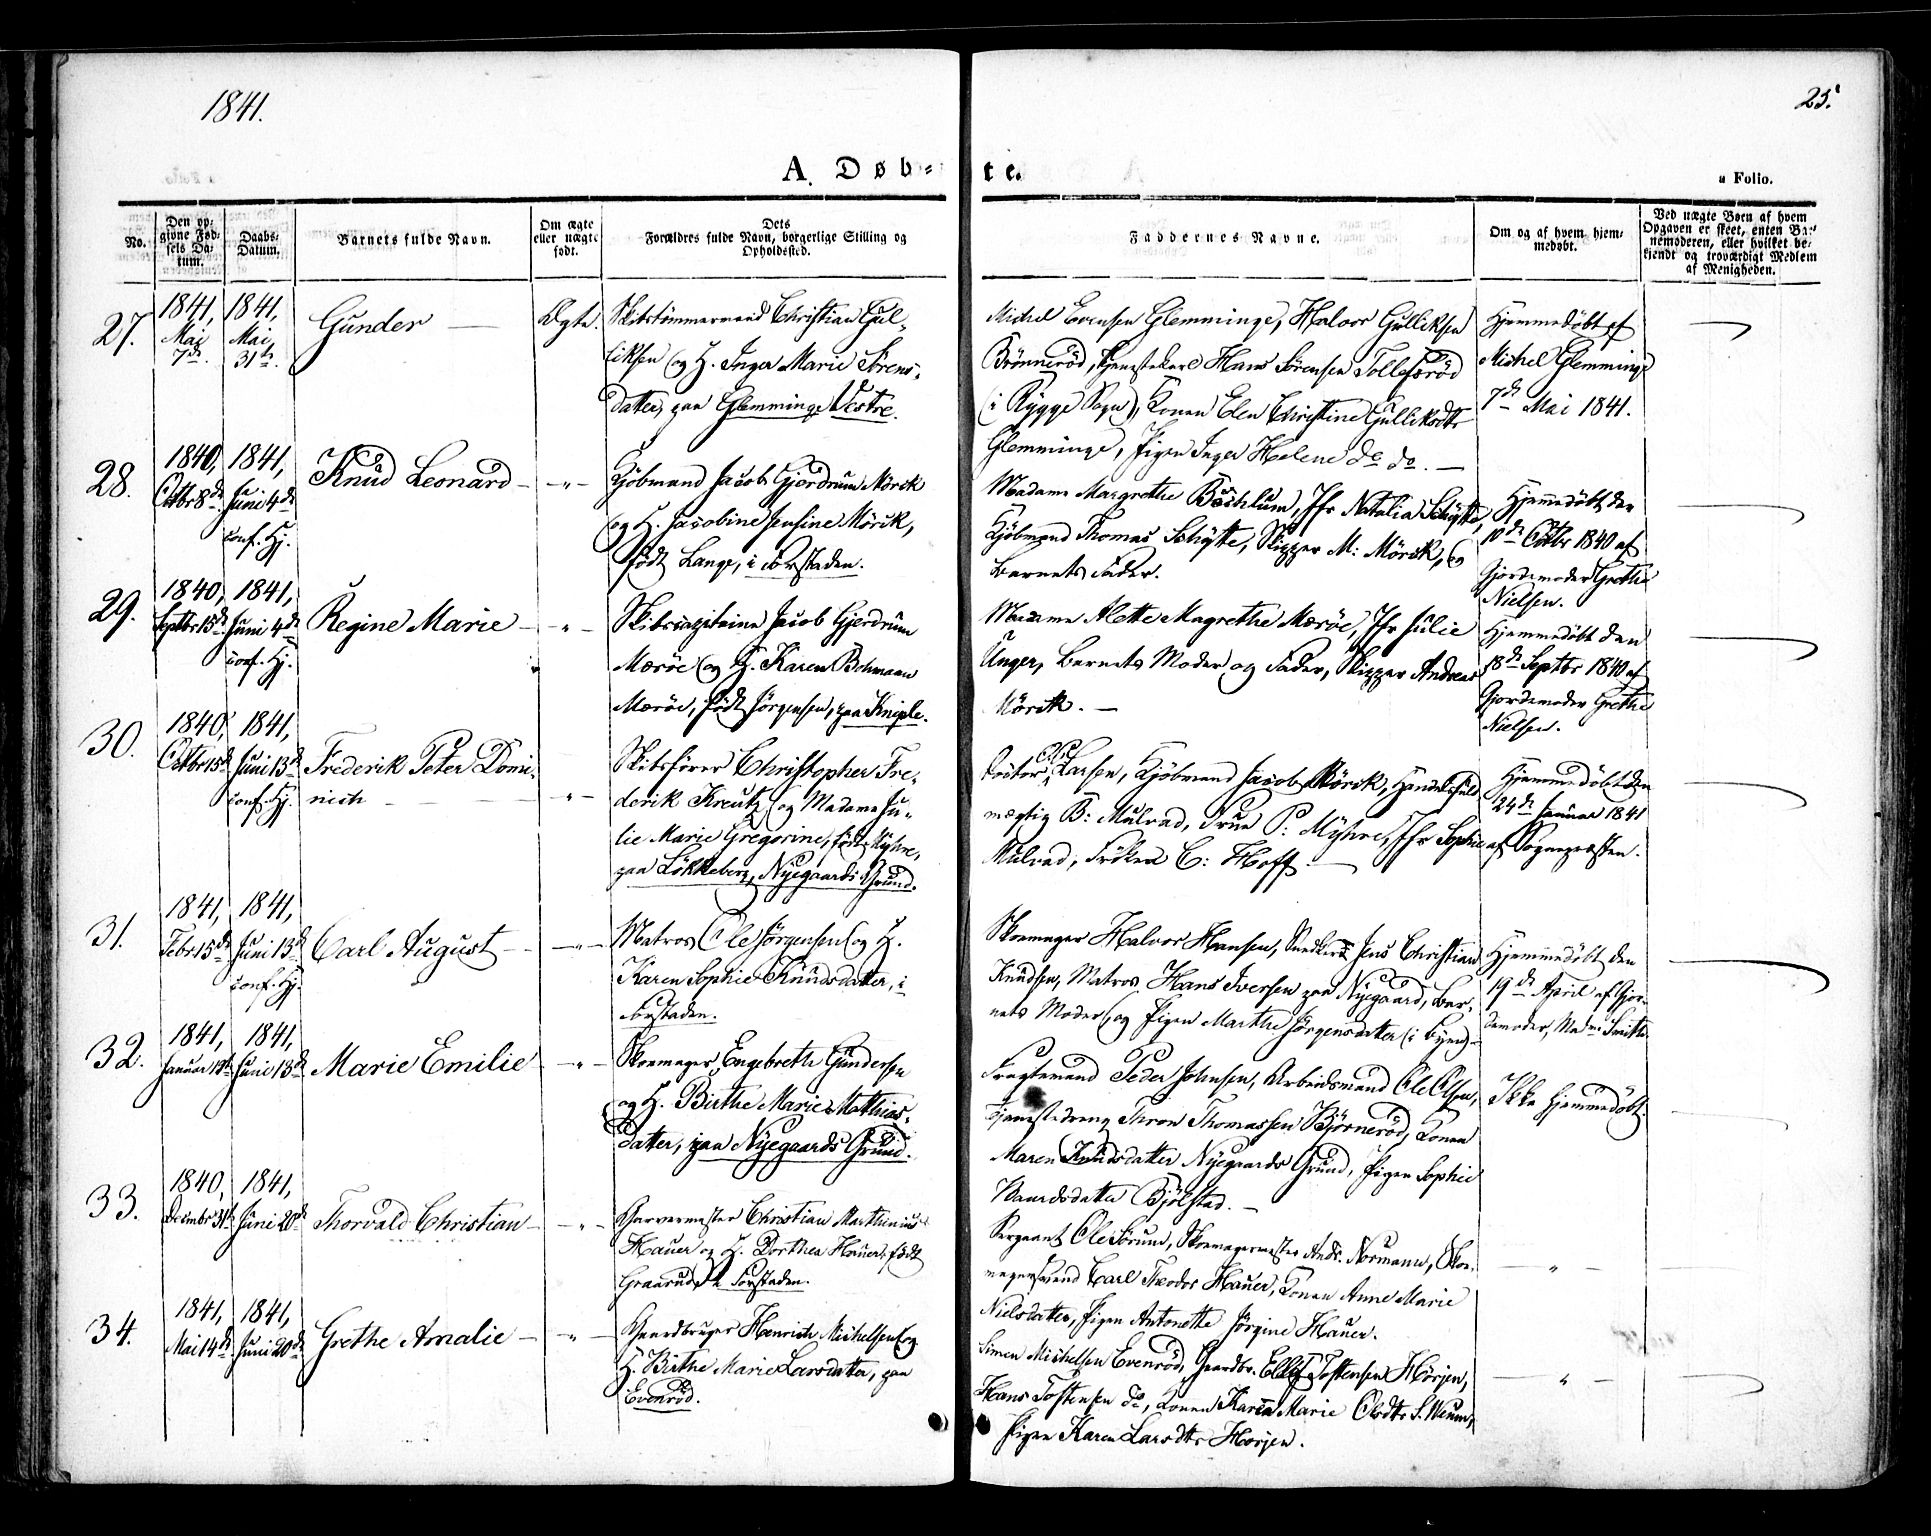 1841.
25.
A. Døb=
te.
a Folio.
No.
Den op=
givne Fød=
sels Da=
tum.
Daabs=
Datum.
Barnets fulde Navn.
Om ægte
eller uægte
født.
Dets
Forældres fulde Navn, borgerlige Stilling og
Opholdssted.
Faddernes Navne.
Om og af hvem hjem=
medøbt.
Ved uægte Børn af hvem
Opgaven er skeet, enten Bar=
nemoderen, eller hvilket be=
kjendt og troværdigt Medlem
af Menigheden.
27.
1841,
Mai
7de.
1841,
Mai,
31te.
Gunder
Ægte.
Skibstømmermand Christian Gul-
liksen og H. Inger Marie Sørens-
datter, paa Glemminge Vestre.
Michel Evensen Glemminge, Halvor Gulliksen
Brønnerød, Tjenestekarl Hans Sørensen Tollefsrød
(i Rygge Sogn), Konen Elen Christine Gulliksdtr
Glemminge, Pigen Inger Helene do do.
Hjemmedøbt af
Michel Glemminge
7de Mai 1841.
28.
1840,
Octbr 8de
1841,
Juni 4de
conf. Hj.
Knud Leonard
- " -
Kjøbmand Jacob Gjørdrum Mørck
og H. Jacobine Jensine Mørck,
født Lange, i Forstaden.
Madame Margrethe, Jfr Natalia Schytte,
Kjøbmand Thomas Schytte, Skipper M: Mørck, og
Barnets Fader.
Hjemmedøbt den
10de Octbr 1840 af
Gjordemoder Grethe
Nielsen.
29.
1840,
Septbr 15de
1841,
Juni 4de
conf. Hj.
Regine Marie
- " -
Skibscapitaine Jacob Gjerdrum
Mærøe og H. Karen Bohmann
Mærøe, født Jørgensen, paa Kniple.
Madame Alette Magrethe Mærøe, Jfr Julie
Unger, Barnets Moder og Fader, Skipper Andreas
Mørck.
Hjemmedøbt den
18de Septbr 1840 af
Gjordemoder Grethe
Nielsen.
30.
1840,
Octbr 15de
1841,
Juni 13de
conf. Hj.
Frederik Peter Domi-
nich
- " -
Skibsfører Christopher Fre-
derik Kreutz og Madame Ju-
lie Marie Gregorine, født Myhre,
paa Løkkeberg, Nyegaards Grund.
Doctor Larsen, Kjøbmand Jacob Mørck, Handelsfuld-
mægtig B: Mulvad, Frue P: Myhre, Jfr Sophie
Mulvad, Frøken C: Hoff.
Hjemmedøbt den
24de Januar 1841
af Sognepræsten.
31.
1841,
Febr 15de
1841,
Juni 13de
conf. Hj.
Carl August
- " -
Matros Ole Jørgensen og H.
Karen Sophie Knudsdatter, i
Forstaden.
Skomager Halvor Hansen, Snedker Jens Christian
Knudsen, Matros Hans Iversen paa Nyegaard, Bar-
nets Moder og Pigen Marthe Jørgensdatter (i Byen)
Hjemmedøbt den
19de April af Gjor-
demoder, Madm Smith.
32.
1841,
Januar 19de
1841,
Juni 13de
Marie Emilie
- " -
Skomager, Engebreth Gundersen
og H. Birthe Marie Mathias-
datter, paa Nyegaards Grund.
Fragtemand Peder Johnsen, Arbeidsmand Ole Olsen,
Tjenestedreng Thron Thomassen Bjørnerød, Konen
Maren Knudsdatter Nyegaards Grund, Pigen Sophie
Baardsdatter Bjølstad.
Ikke hjemmedøbt.
33.
1840,
Decmbr 31te
1841,
Juni 20de
Thorvald Christian
- " -
Garvermester Christian Marthinius
Hauer og H. Dorthea Hauer, født
Graarud, i Forstaden.
Sergeant Ole Sørum, Skomagermester Ands. Normann, Sko-
magersvend Carl Theodor Hauer, Konen Anne Marie
Nielsdatter, Pigen Antonette Jørgine Hauer.
- " -
34.
1841,
Mai 14de
1841,
Juni 20de
Grethe Amalie
- " -
Gaardbruger Henrich Michelsen og
H. Birthe Marie Larsdatter, paa
Evenrød.
Simen Michelsen Evenrød, Gaardbr. Ellef Tostensen Hørjen,
Hans Tostensen do, Konen Karen Marie Olsdtr S. Weum,
Pigen Karen Larsdtr Horjen.
- " -